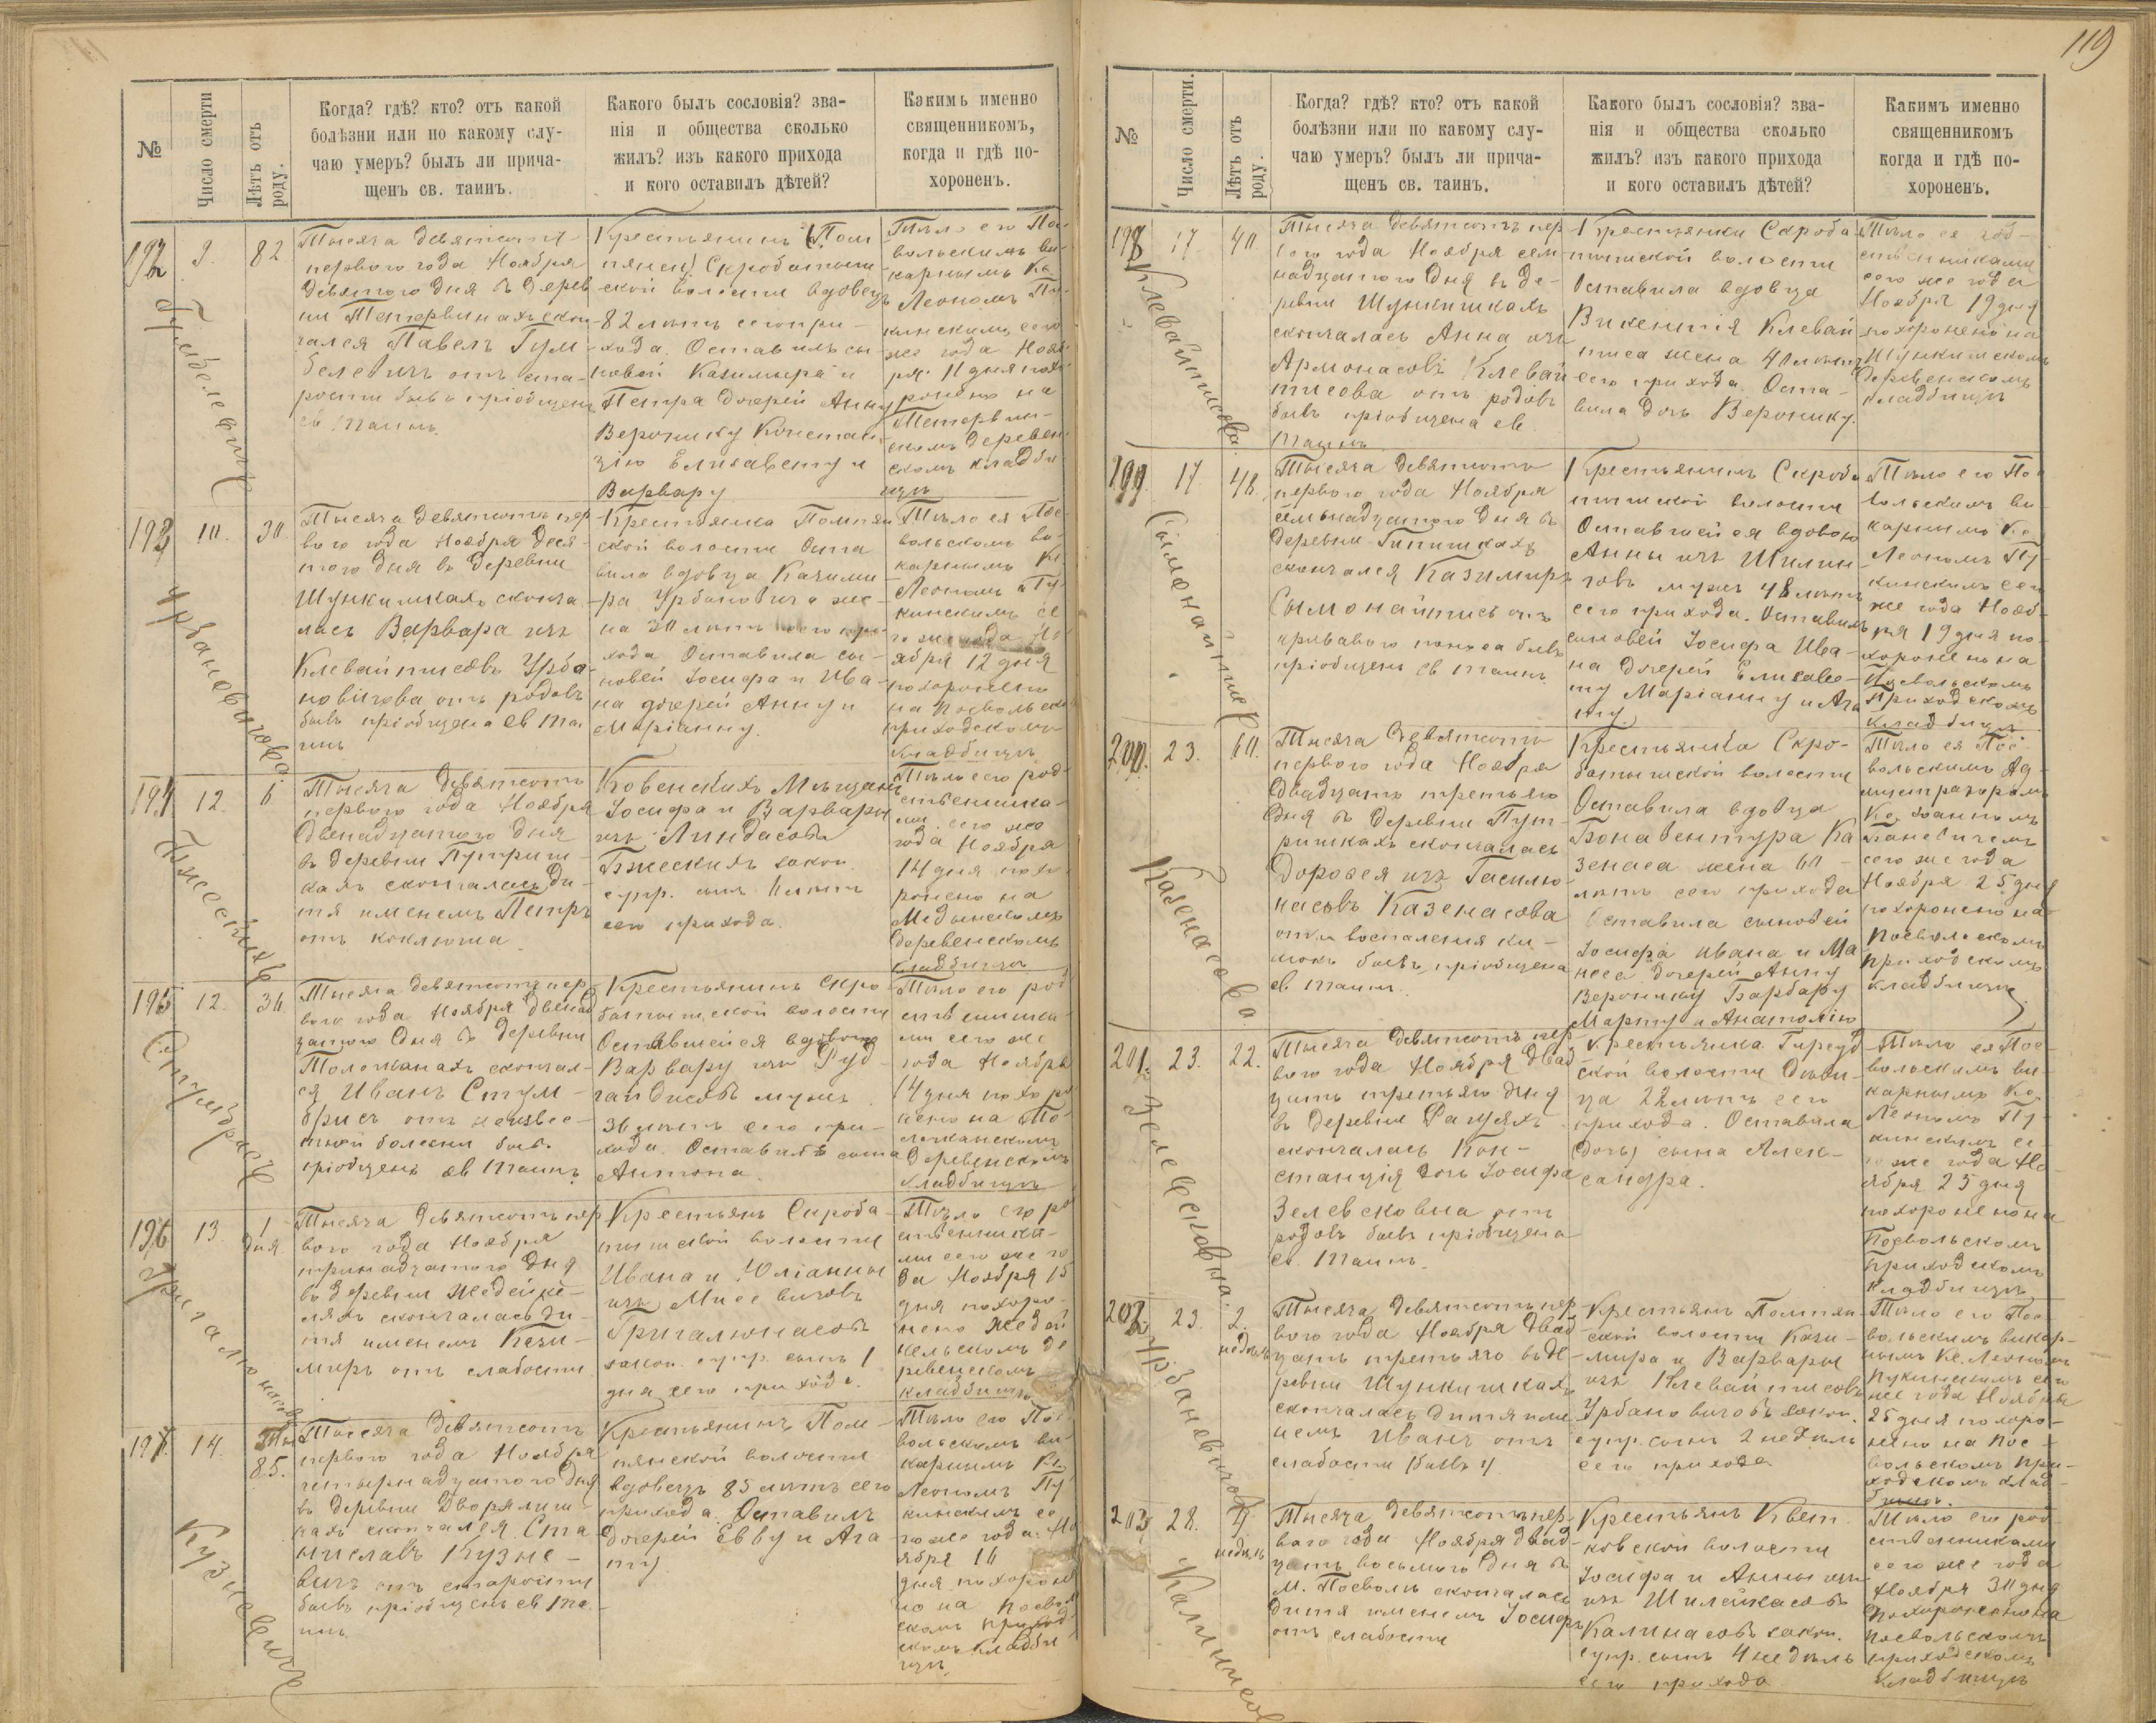 119
№
Число смерти
Лѣтъ отъ роду.
Когда? гдѣ? кто? отъ какой
болѣзни или по какому слу-
чаю умеръ? былъ ли прича-
щенъ св. таинъ.
Какого былъ сословія? зва-
нія и общества сколько
жилъ? изъ какого прихода
и кого оставилъ дѣтей?
Какимъ именно
священникомъ,
когда и гдѣ по-
хороненъ.
192
9.
82
Гумбелевичъ
Тысяча девятьсотъ
перваго года Ноября
девятого дня въ дерев
ни Тетервинахъ скон
чался Павелъ Гум
белевичъ отъ ста-
рости бывъ пріобщенъ
св Таинъ.
Крестьянинъ Пом
пянск. Скроботыш
ской волости вдовецъ
82 лѣтъ сего при-
хода. Оставилъ сы-
новей Казимира и
Петра дочерей Анну
Веронику Констан
цію Елисавету и
Варвару
Тѣло его По
вольскимъ ви-
карнымъ Кс.
Леономъ Пу-
кинскимъ сего
же года Нояб
ря 11 дня похо
ронено на
Тетервин-
скомъ деревен
скомъ кладби
щѣ
193
10.
30.
Урбановичова.
Тысяча девятьсотъ пер
ваго года Ноября деся-
того дня въ деревни
Шункишкахъ сконча
лась Варвара изъ
Клевайтисовъ Урба-
новичова отъ родовъ
бывъ пріобщена св Та
инъ
Крестьянка Помпян
ской волости Оста
вила вдовца Казими
ра Урбановича же-
на 30 лѣтъ сего при-
хода Оставила сы-
новей Іосифа и Ива-
на дочерей Анну и
Маріанну.
Тѣло ея Пос
вольскимъ ви-
карнымъ Кс
Леономъ Пу-
кинскимъ се
го же года Но
ября 12 дня
похоронено
на Посвольском
приходскомъ
кладбищѣ
194
12.
6
Бжескихъ
Тысяча девятьсотъ
перваго года Ноября
двенадцатого дня
въ деревни Путриш
кахъ скончалось ди-
тя именемъ Петръ
отъ коклюша
Ковенскихъ Мѣщанъ
Іосифа и Варвары
изъ Линдасовъ
Бжескихъ закон
супр. сынъ 6 лѣтъ
сего прихода.
Тѣло его род-
ственника-
ми сего же
года Ноября
14 дня похо
ронено на
Медынскомъ
деревенскомъ
кладбищѣ
195
12.
36.
Стумбрисъ
Тысяча девятьсотъ пер
ваго года Ноября двенад
цатого дня въ деревни
Толочканахъ скончал-
ся Иванъ Стум-
брисъ отъ неизвес-
тной болезни бывъ
пріобщенъ св Таинъ.
Крестьянинъ Скро
ботышской волости
Оставшейся вдовою
Варвару изъ Руд-
гайдисовъ мужъ
36 лѣтъ сего при-
хода. Оставилъ сына
Антона.
Тѣло его род
ственника-
ми сего же
года Ноября
14 дня похоро
нено на То-
лочканскомъ
деревенскомъ
кладбищѣ
196
13.
1 дня
Григалюнасовъ
Тысяча девятьсотъ пер
ваго года Ноября
тринадцатого дня
въ деревни Жедейке-
ляхъ скончалась ди-
тя именемъ Кази-
миръ отъ слабости
Крестьянъ Скроба
тышской волости
Ивана и Юліанны
изъ Мисевичовъ
Григалюнасовъ
закон. супр. сынъ 1
дня сего прихода.
Тѣло его ро
дственника-
ми сего же го
да Ноября 15
дня похоро-
нено Жедей
кельскомъ де
ревенскомъ
кладбищѣ
197
14.
85.
Кузневичъ
Тысяча девятьсотъ
перваго года Ноября
четырнадцатого дня
въ деревни Дворялиш
кахъ скончался Ста
ниславъ Кузне-
вичъ отъ старости
бывъ пріобщенъ св Та-
инъ.
Крестьянинъ Пом-
пянской волости
вдовецъ 85 лѣтъ сего
прихода. Оставилъ
дочерей Евву и Ага
ту
Тѣло его По
вольскомъ ви-
карнымъ Кс.
Леономъ Пу
кинскимъ се
го же года Но
ября 16
дня похороне
но на Посволь
скомъ приход
скомъ кладби
щѣ.
№
Число смерти.
Лѣтъ отъ роду.
Когда? гдѣ? кто? отъ какой
болѣзни или по какому слу-
чаю умеръ? былъ ли прича-
щенъ св. таинъ.
Какого былъ сословія? зва-
нія и общества сколько
жилъ? изъ какого прихода
и кого оставилъ дѣтей?
Какимъ именно
священникомъ
когда и гдѣ по-
хороненъ.
198
17.
40.
Клевайтисова.
Тысяча девятьсотъ пер
ваго года Ноября сем
надцатого дня въ де-
ревни Шункишкахъ
скончалась Анна изъ
Армонасовъ Клевай
тисова отъ родовъ
бывъ пріобщена св.
Таинъ
Крестьянка Скроба
тышской волости
Оставила вдовца
Викентія Клевай
тиса жена 40 лѣтъ
сего прихода. Оста-
вила дочь Веронику.
Тѣло ея род-
ственниками
сего же года
Ноября 19 дня
похоронено на
Шункишскомъ
деревенскомъ
кладбищѣ
199
17
48.
Сымонайтис
Тысяча девятьсотъ
перваго года Ноября
семьнадцатого дня въ
деревни Гипишкахъ
скончался Казимиръ
Сымонайтисъ отъ
криваваго поноса бывъ
пріобщенъ св Таинъ.
Крестьянинъ Скроба
тышской волости
Оставшейся вдовою
Анны изъ Шилин
говъ мужъ 48 лѣтъ
сего прихода. Оставилъ
сыновей Іосифа Ива-
на дочерей Елисаве-
ту Маріанну и Ага
ту.
Тѣло его По
вольскимъ ви
карнымъ Кс
Леономъ Пу-
кинскимъ сего
же года Нояб-
ря 19 дня по-
хоронено на
Посвольскомъ
Приходскомъ
кладбищѣ.
200.
23.
60.
Казенасова
Тысяча девятьсотъ
перваго года Ноября
двадцать третьяго
дня въ деревни Пут-
ришкахъ скончалась
Доросея изъ Гасилю-
насовъ Казенасова
отъ воспаления ки-
шокъ бывъ пріобщена
св. Таинъ.
Крестьянка Скро-
батышской волости
Оставила вдовца
Бонавентура Ка
зенаса жена 60
лѣтъ сего прихода
Оставила сыновей
Іосифа Ивана и Ма
теса дочерей Анну
Веронику Барбару
Марту и Анатолію
Тѣло ея Пос-
вольскимъ Ад-
министраторомъ
Кс. Іоанномъ
Паневичемъ
сего же года
Ноября 25 дня
похоронено на
Посвольскомъ
приходскомъ
кладбищѣ
201.
23.
22.
Зелевсковна.
Тысяча девятьсотъ пер
ваго года Ноября двад
цать третьяго дня
въ деревни Ражяхъ
скончалась Кон-
станція дочь Іосифа
Зелевсковна отъ
родовъ бывъ пріобщена
св. Таинъ.
Крестьянка Гиреуд
ской волости Деви-
ца 22 лѣтъ сего
прихода. Оставила
(дочь) сына Алек-
сандра.
Тѣло ея Пос-
вольскимъ ви-
карнымъ Кс.
Леономъ Пу-
кинскимъ се-
го же года Но-
ября 25 дня
похоронено на
Посвольскомъ
Приходскомъ
кладбищѣ
202
23.
2. недѣль
Урбановичовъ
Тысяча девятьсотъ пер
ваго года Ноября двад
цать третьяго въ де-
ревни Шункишкахъ
скончалась дитя име
немъ Иванъ отъ
слабости
Крестьянъ Помпян
ской волости Кази-
мира и Варвары
изъ Клевайтисовъ
Урбановичовъ закон.
супр. сынъ 2 недѣль
сего прихода
Тѣло его Пос
вольскимъ викар-
нымъ Кс. Леономъ
Пукинскимъ сего
же года Ноября
25 дня похоро-
нено на Пос-
вольскомъ при-
ходскомъ клад-
бищѣ.
203
28.
4 недѣль
Калинасовъ
Тысяча девятьсотъ пер
ваго года Ноября двад
цать восьмого дня въ
м. Посволь скончалась
дитя именемъ Іосифъ
отъ слабости
Крестьянъ Квет
ковской волости
Іосифа и Анны изъ
Шилейкасовъ
Калинасовъ закон.
супр. сынъ 4 недѣль
сего прихода
Тѣло его род
ственниками
сего же года
Ноября 30 дня
похоронено на
Посвольскомъ
приходскомъ
кладбищѣ